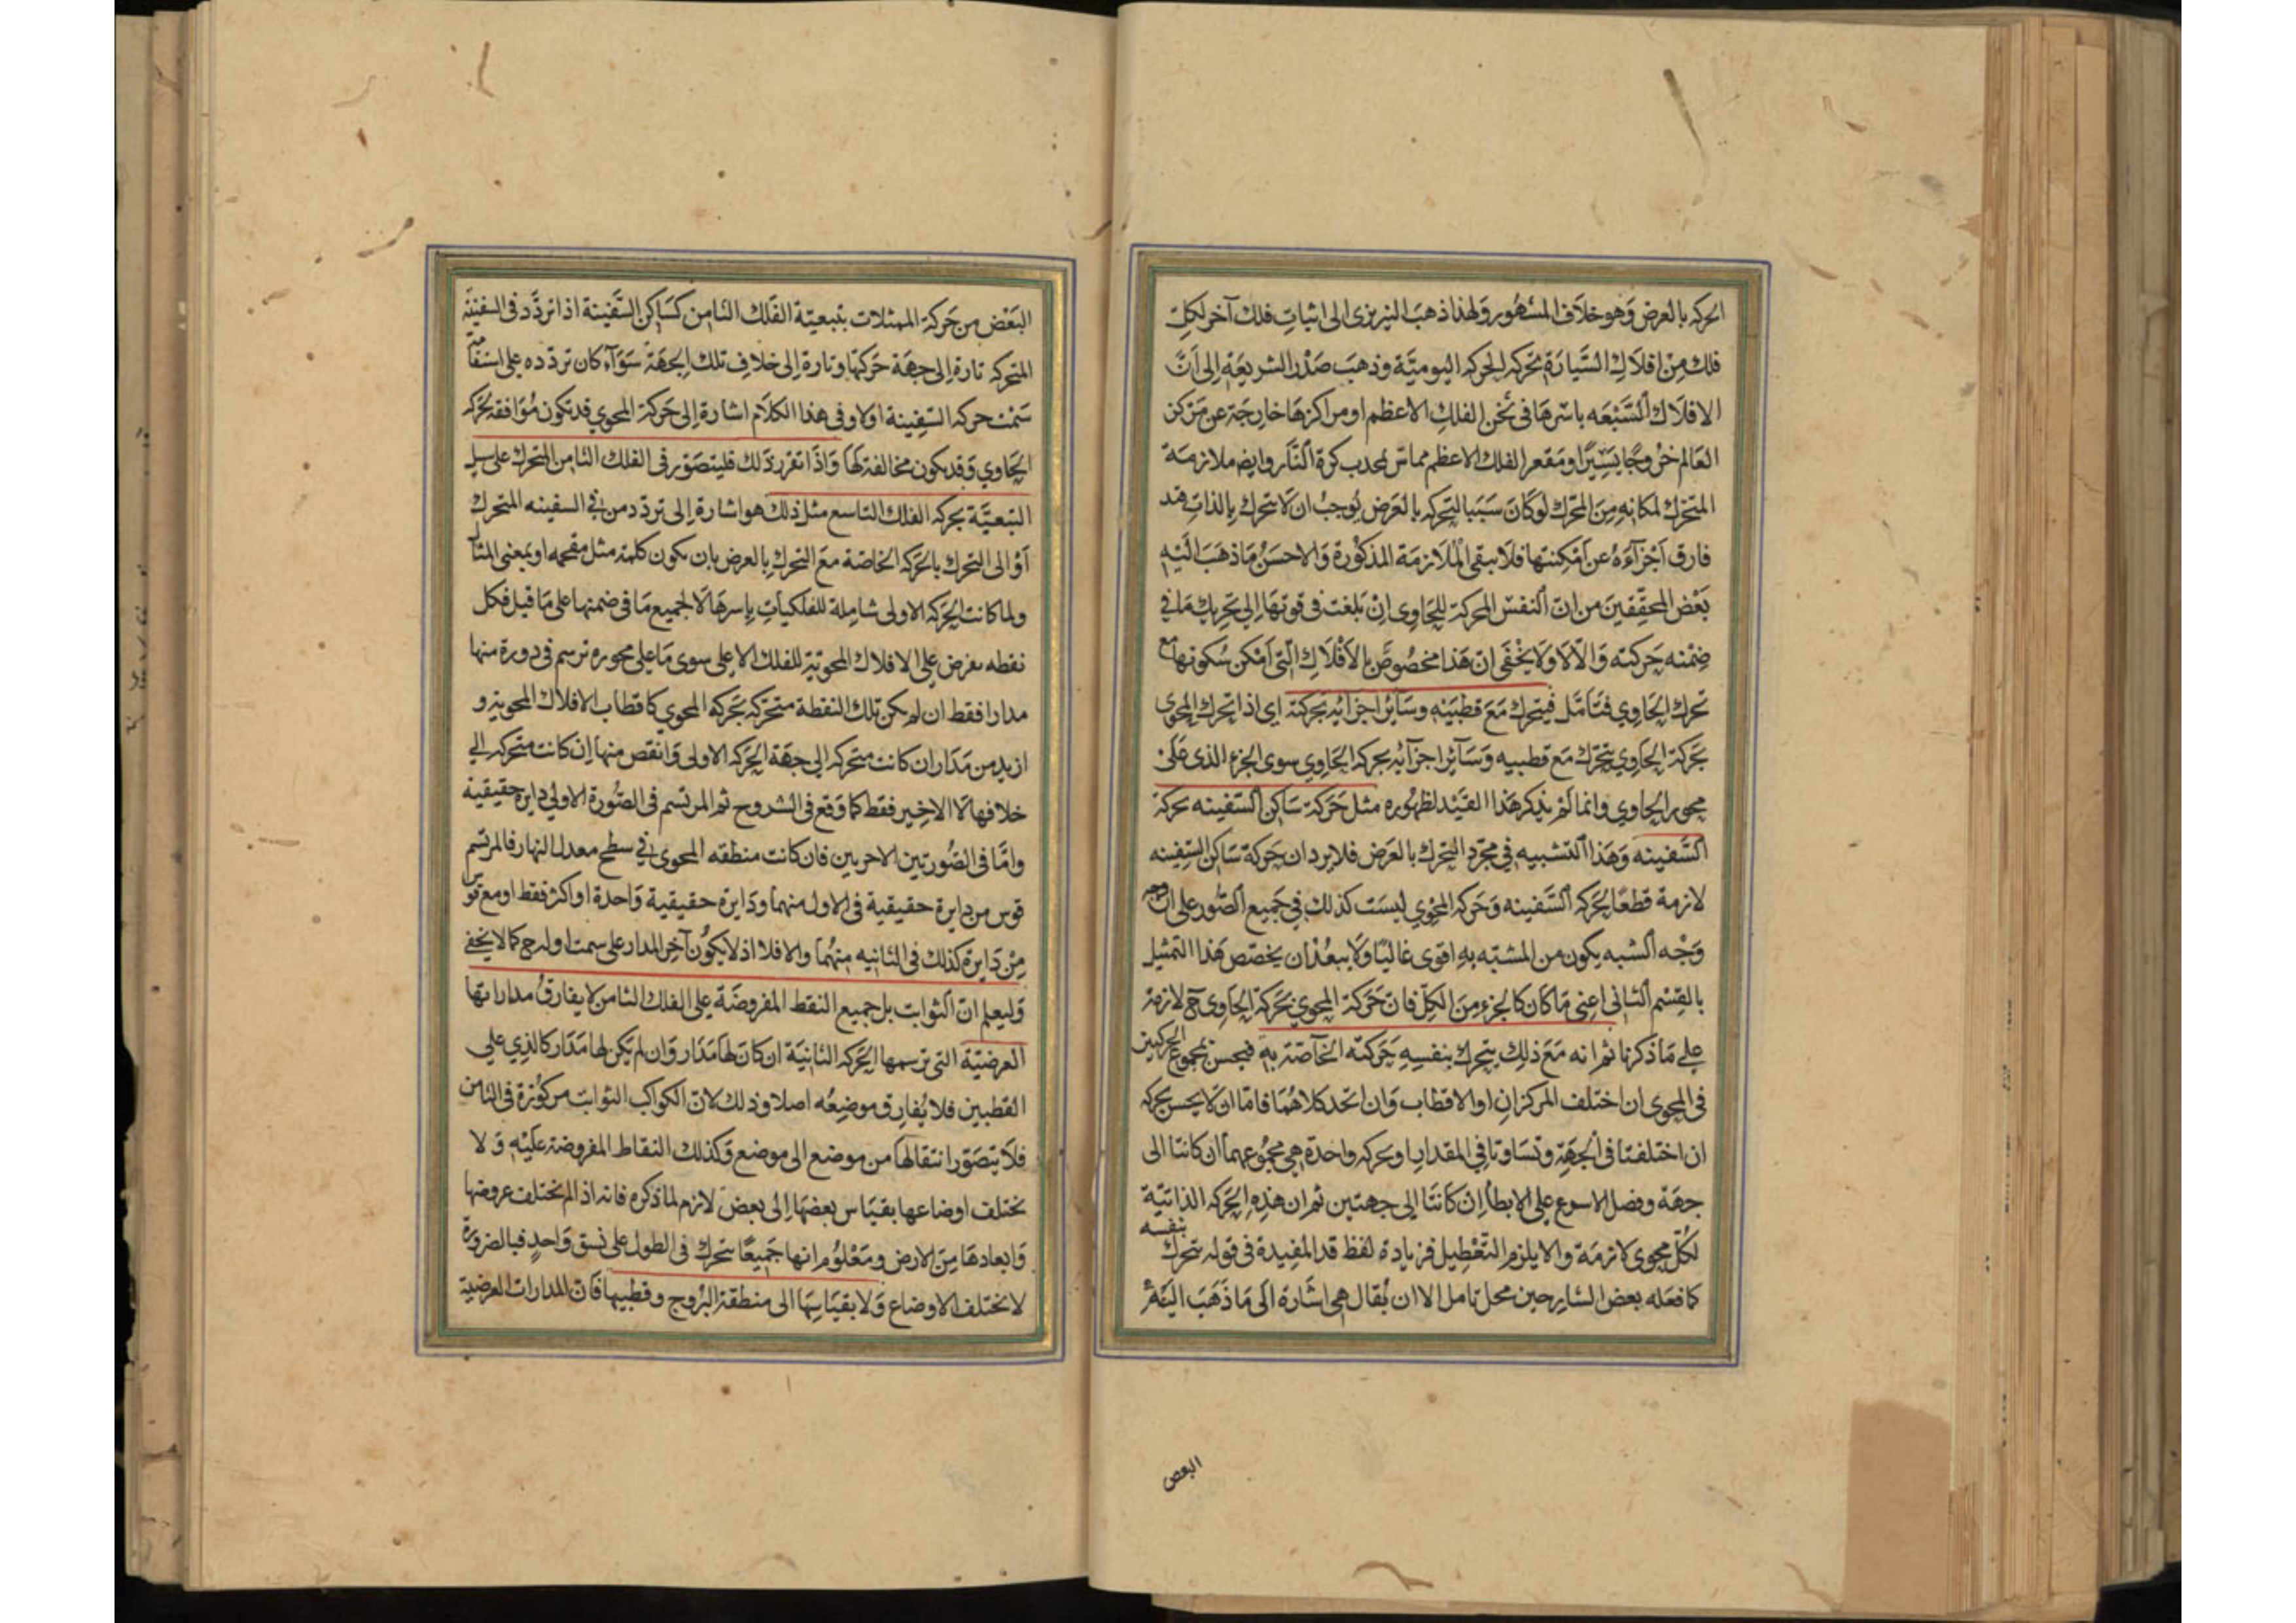 الحركه بالعرض وهو خلاف المشهور ولهذا ذهب النيريزى الى اثبات فلك آخر لكل
فلك من افلاك السيارة تحركه الحركه اليومية وذهب صدر الشريعة الى ان
الافلاك السبعه باسرها فى ثخن الفلك الاعظم او مراكزها خارجة عن مركز
العالم خروجا يسيرا ومقعر الفلك الاعظم مماس لمحدب كرة النار وايضا ملازمة
المتحرك لمكانه من المحرك لو كان سببا لتحركه بالعرض يوجب ان لا يتحرك بالذات فقد
فارق اجزآءه عن امكنتها فلا يبقى الملازمة المذكورة والاحسن ما ذهب اليه
بعض المحققين من ان النفس المحركة للحاوى ان بلغت فى قوتها الى تحريك ما فى
ضمنه حركته والا لا ولا يخفى ان هذا مخصوص بالافلاك التى امكن سكونها مع
تحرك الحاوي فتامل فيتحرك مع قطبيه وسائر اجزائه بحركته اى اذا تحرك المحوى
بحركة الحاوي يتحرك مع قطبيه وسائر اجزآئه بحركه الحاوي سوى الجزء الذى على
محور الحاوي وانما لم يذكر هذا القيد لظهوره مثل حركة ساكن السفينه بحركة
السفينه وهذا التشبيه في مجرد التحرك بالعرض فلا يرد ان حركة ساكن السفينه
لازمة قطعا لحركه السفينه وحركه المحوي ليست كذلك في جميع الصور على ان
وجه الشبه يكون من المشبه به اقوى غالبا ولا يبعد ان يخصص هذا التمثيل
بالقسم الثانى اعنى ما كان كالجزء من الكل فان حركة المحوي بحركة الحاوى ح لازمة
على ما ذكرنا ثم انه مع ذلك يتحرك بنفسه حركته الخاصة به فيحس بمجموع الحركتين
فى المحوى ان اختلف المركزان او الاقطاب وان اتحد كلاهما فاما ان لا يحس بحركه
ان اختلفتا فى الجهة وتساوتا في المقدار او بحركه واحدة هى مجموعهما ان كانتا الى
جهة وفضل الاسرع على الابطأ ان كانتا الى جهتين ثم ان هذه الحركه الذاتية
لكل محوى لازمة والا يلزم التعطيل فزيادة لفظ قد المفيدة فى قوله يتحرك بنفسه
كما فعله بعض الشارحين محل تامل الا ان يقال هى اشارة الى ما ذهب اليه
البعض
البعض من حركة الممثلات بتبعية الفلك الثامن كساكن السفينة اذا تردد فى السفينة
المتحركه تارة الى جهة حركتها وتارة الى خلاف تلك الجهة سوآء كان تردده على استقامة
سمت حركه السفينة اولا وفى هذا الكلام اشارة الى حركة المحوي قد تكون موافقه لحركه
الحاوي وقد يكون مخالفة لها واذا تقرر ذلك فليتصور فى الفلك الثامن المتحرك على سبيل
التبعية بحركه الفلك التاسع مثل ذلك هو اشارة الى تردد من في السفينه المتحرك
او الى التحرك بالحركه الخاصة مع التحرك بالعرض بان يكون كلمة مثل مقحمه او بمعنى المثال
ولما كانت الحركه الاولى شاملة للفلكيات باسرها لا لجميع ما فى ضمنها على ما قيل فكل
نقطه تفرض على الافلاك المحوية للفلك الاعلى سوى ما على محوره ترسم فى دورة منها
مدارا فقط ان لم يكن تلك النقطة متحركه بحركه المحوي كاقطاب الافلاك المحوية و
ازيد من مدار ان كانت متحركه الى جهة الحركه الاولى وانقص منها ان كانت متحركه الي
خلافها لا الاخير فقط كما وقع فى الشروح ثم المرتسم فى الصورة الاولى دايره حقيقية
واما فى الصورتين الاخريين فان كانت منطقه المحوى في سطح معدل النهار فالمرتسم
قوس من دايرة حقيقية فى الاول منهما ودايرة حقيقية واحدة او اكثر فقط او مع قوس
من دايرة كذلك فى الثانيه منهما والا فلا اذ لا يكون آخر المدار على سمت اوله ح كما لا يخفى
وليعلم ان الثوابت بل جميع النقط المفروضة على الفلك الثامن لا يفارق مداراتها
العرضية التى ترسمها الحركه الثانية ان كان لها مدار وان لم يكن لها مدار كالذي على
القطبين فلا يفارق موضعه اصلا وذلك لان الكواكب الثوابت مركوزة فى الثامن
فلا يتصور انتقالها من موضع الى موضع وكذلك النقاط المفروضة عليه ولا
يختلف اوضاعها بقياس بعضها الى بعض لازم لما ذكره فانه اذا لم يختلف عروضها
وابعادها من الارض ومعلوم انها جميعا تتحرك فى الطول على نسق واحد فبالضرورة
لا تختلف الاوضاع ولا بقياسها الى منطقة البروج وقطبيها فان المدارات العرضية